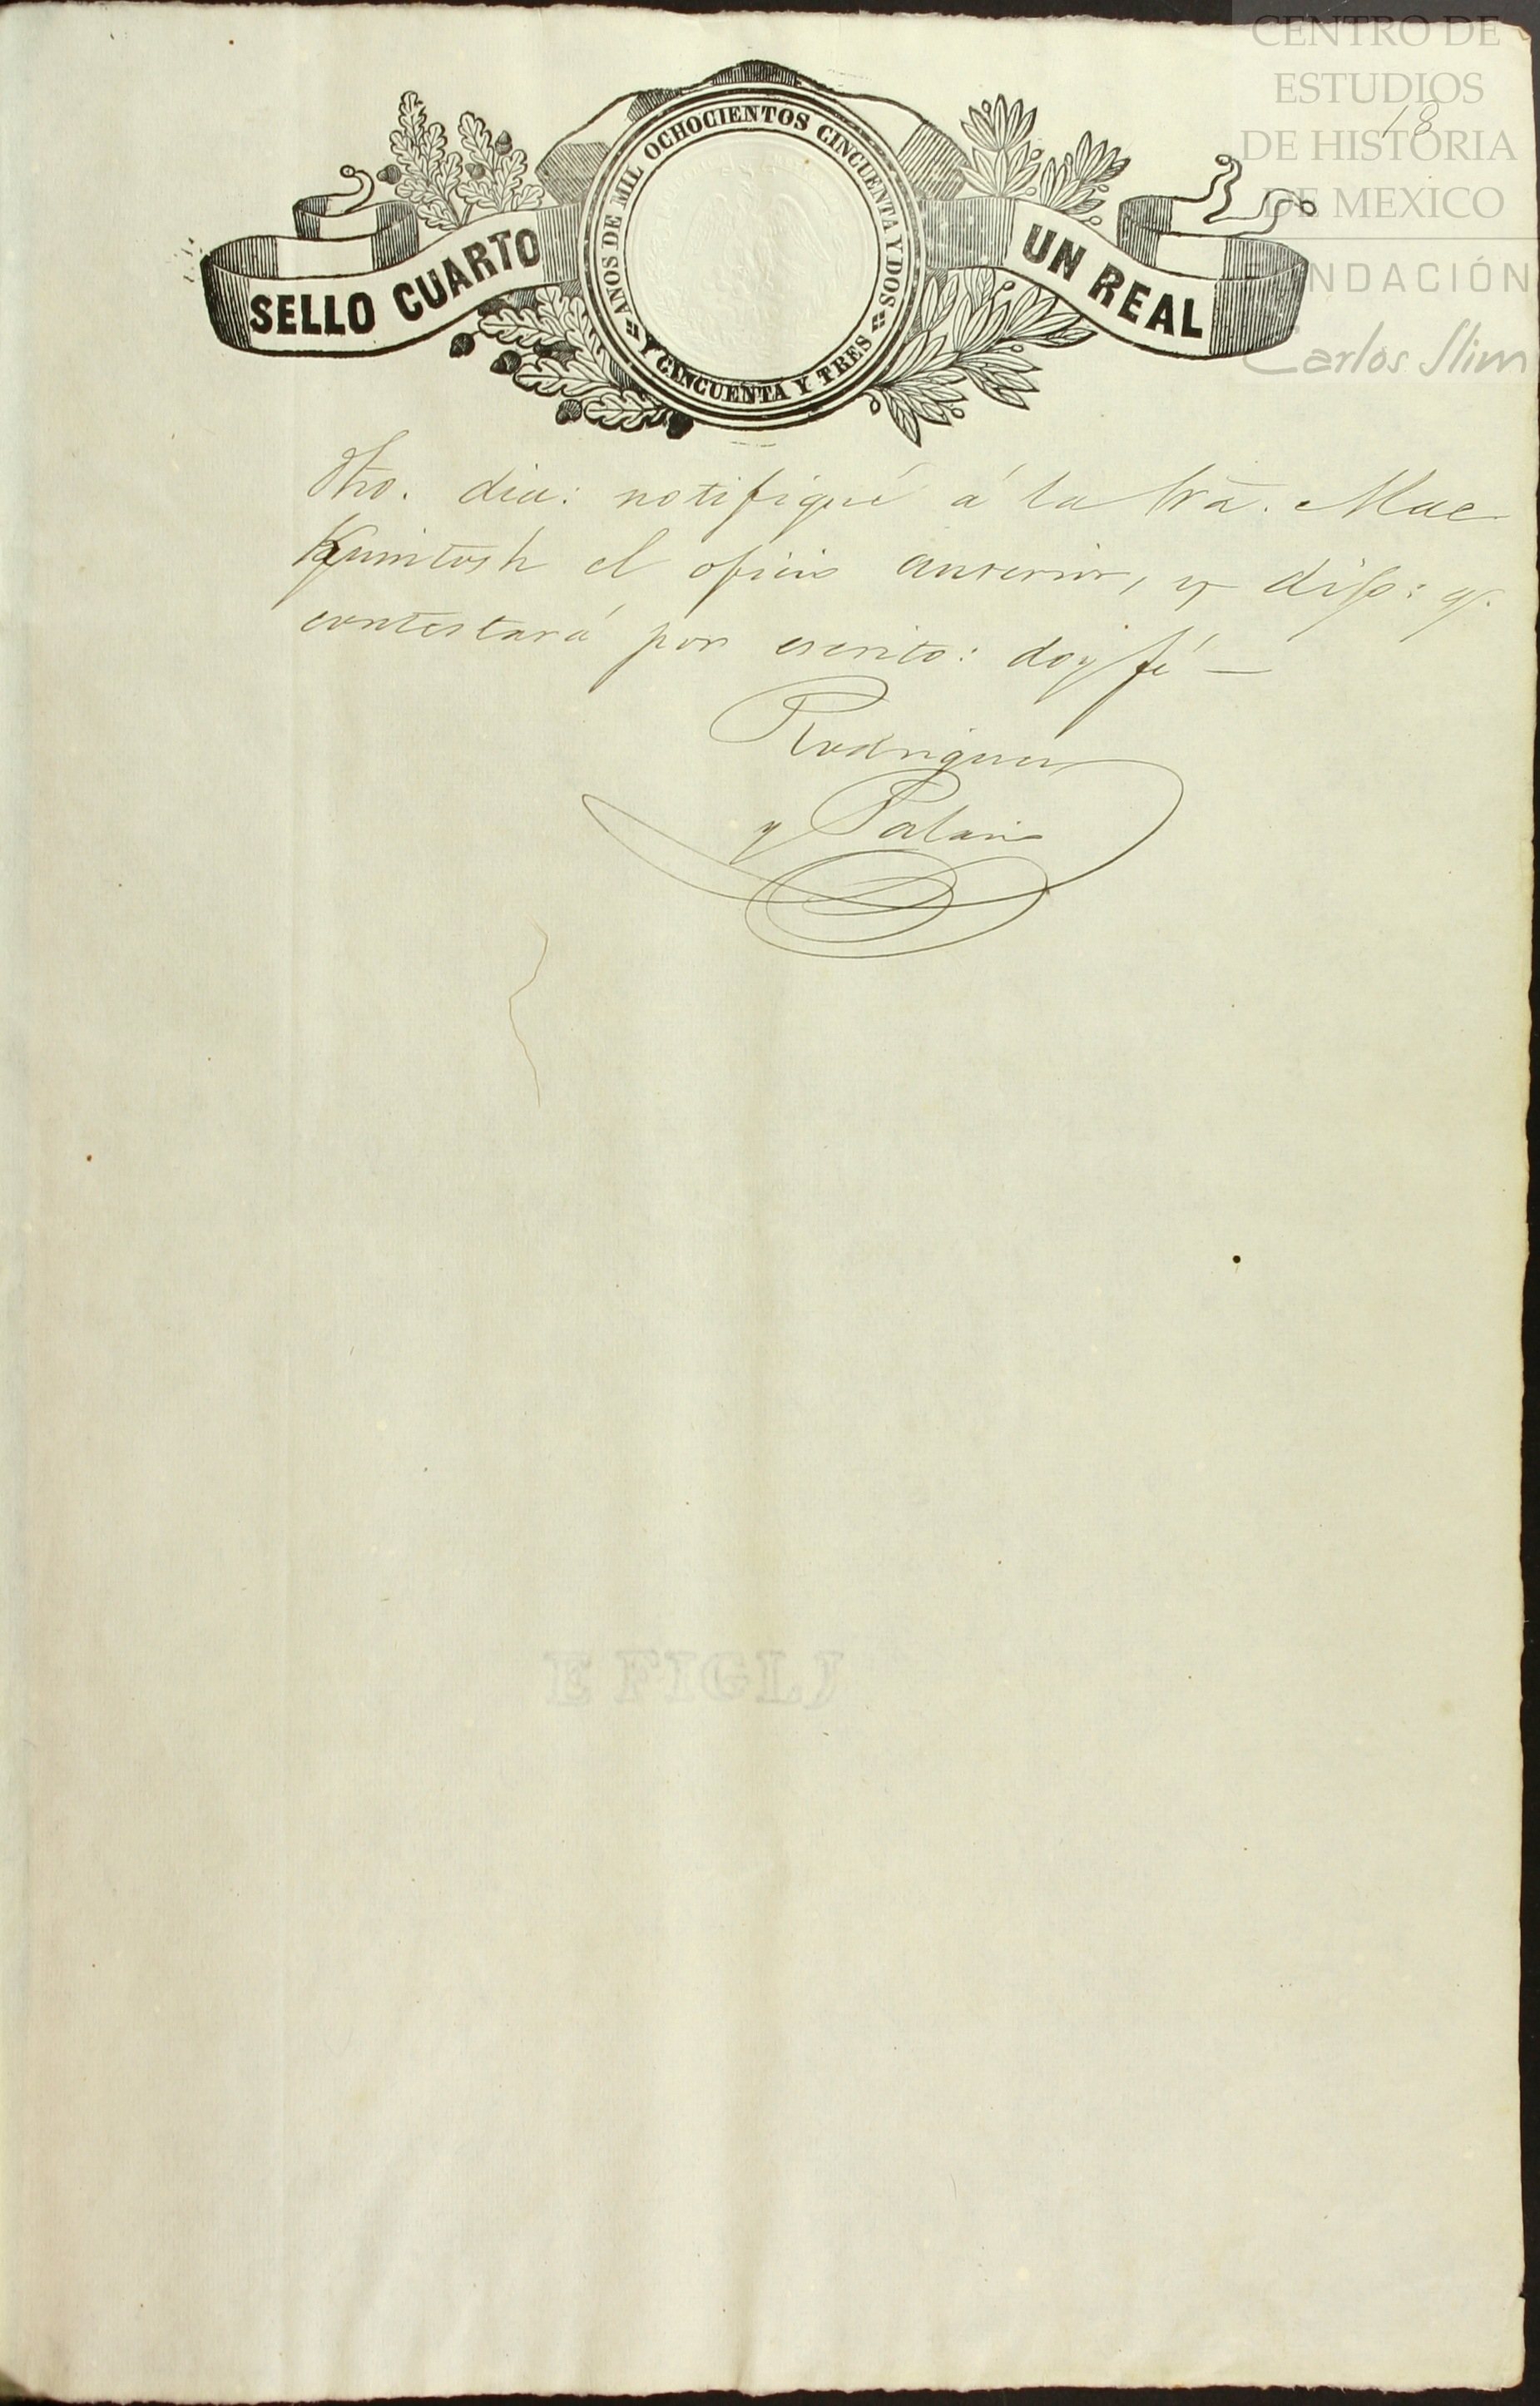 CENTRO DE
ESTUDIOS
DE HISTORIA
DE MEXICO
FUNDACIÓN
Carlos Slim
18
SELLO CUARTO
AÑOS DE MIL OCHOCIENTOS CINCUENTA Y DOS
Y CINCUENTA Y TRES
UN REAL
dho. dia: notifiqué á la Srã. Mac
Kuintosh el oficio anterior, y dijo: q.
contestará por escrito: doy fé —
Rodriguez
y Palacio
E FIGLJ